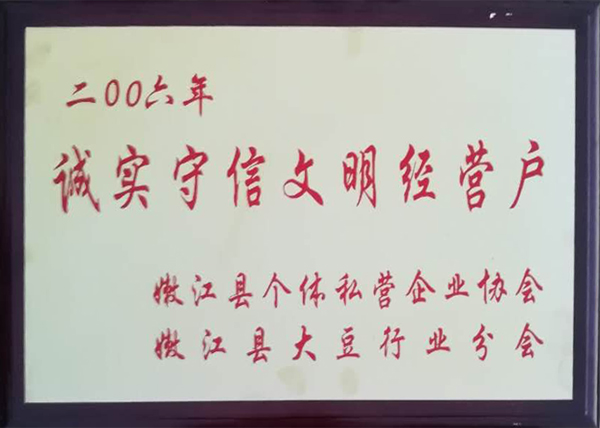 二00六年
诚实守信文明经营户
嫩江县个体私营企业协会
嫩江县大豆行业分会